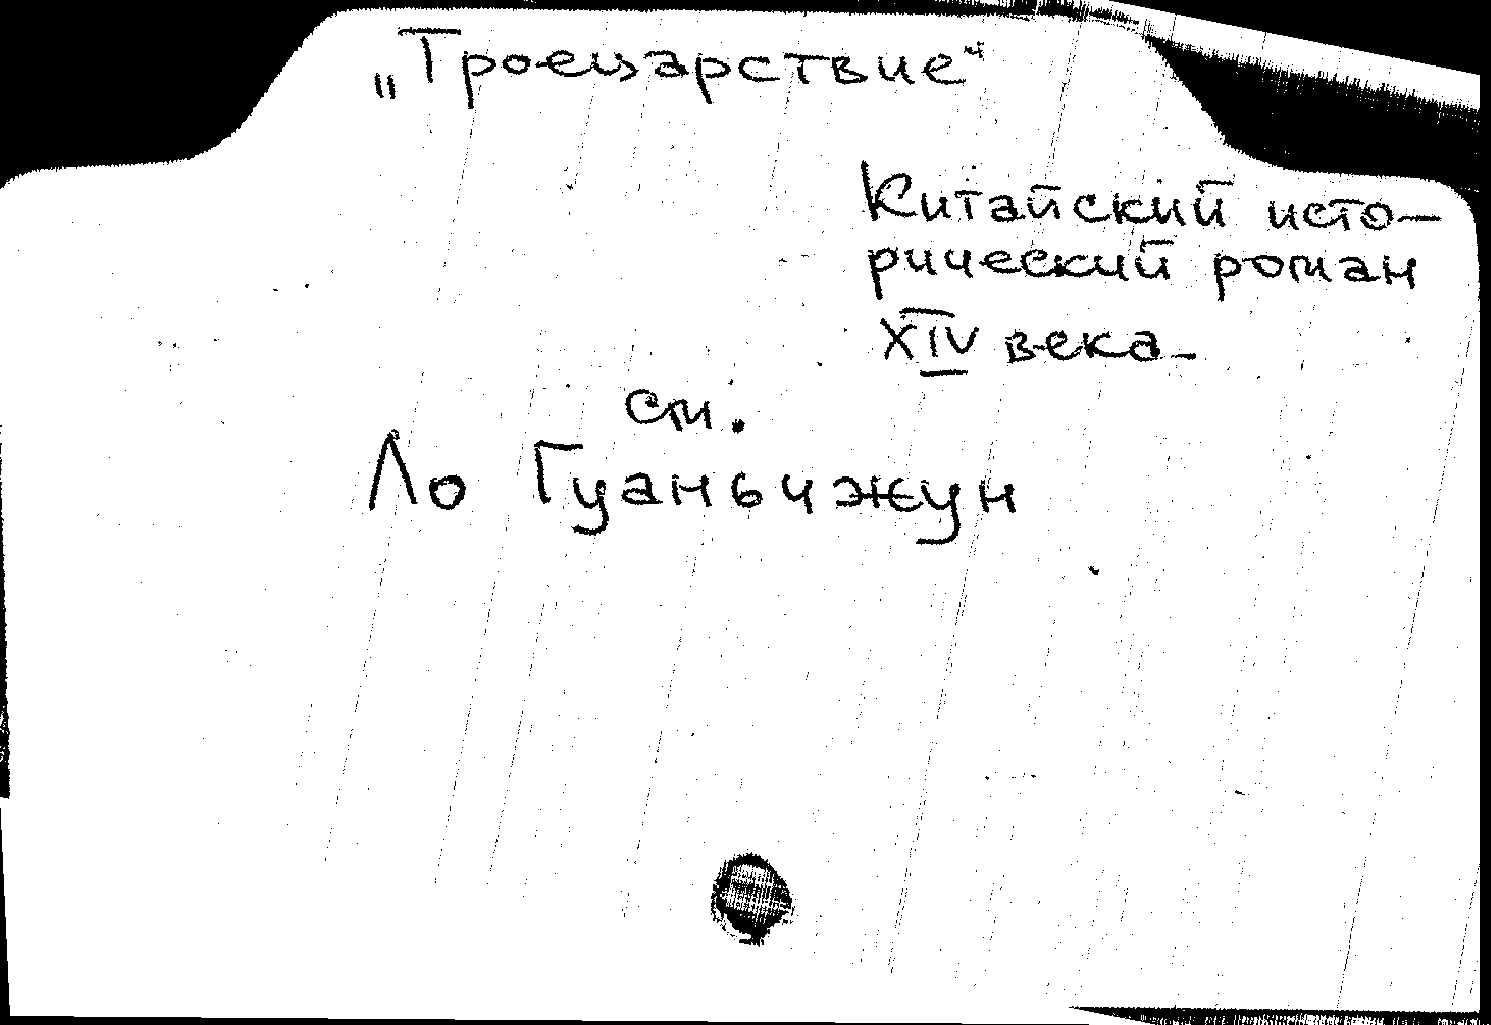 „Троецарствие"
Китайский исто-
рический роман
XIV века.
см.
Ло Гуаньчжун